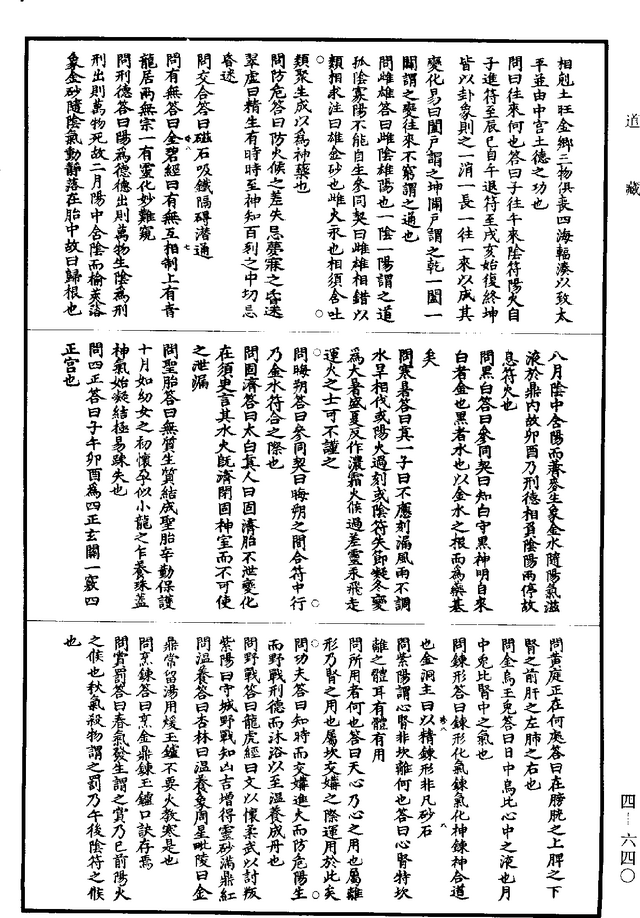 道藏
相剋土旺金鄉三物俱喪四海輻湊以致太
平並由中宮土德之功也
問曰往來何也答曰子往午來陰符陽火自
子進符至辰巳自午退符至戌亥始復終坤
皆以卦象則之一消一長一往一來以成其
變化易曰闔戶謂之坤闢戶謂之乾一闔一
闢謂之變往來不窮謂之通也
問雌雄答曰雌陰雄陽也一陰一陽謂之道
孤陰寡陽不能自生參同契曰雌雄相錯以
類相求注曰雄金砂也雌火汞也相須含吐
類聚生成以為神藥也
問防危答曰防火候之差失忌夢寐之昏迷
翠虛曰精生有時時至神知百刻之中切忌
昏迷
問交合答曰磁石吸鐵隔礙潛通
問有無答曰金碧經曰有無互相制上有青
龍居兩無宗一有靈化妙難窺
問刑德答曰陽為德德出則萬物生陰為刑
刑出則萬物死故二月陽中含陰而榆莢落
象金砂隨陰氣動靜落在胎中故曰歸根也
八月陰中含陽而薺麥生象金水隨陽氣滋
液於鼎內故卯酉乃刑德相負陰陽兩停故
息符火也
問黑白答曰參同契曰知白守黑神明自來
白者金也黑者水也以金水之根而為藥基
矣
問寒暑答曰真一子曰不應刻漏風雨不調
水旱相伐或陽火過刻或陰符失節凝冬變
為大暑盛夏反作濃霜火候過差靈汞飛走
運火之士可不謹之
問晦朔答曰參同契曰晦朔之間合符中行
乃金水符合之際也
問固濟答曰太白真人曰固濟胎不泄變化
在須臾言其水火既濟閉固神室而不可使
之泄漏
問聖胎答曰無質生質結成聖胎辛勤保護
十月如幼女之初懷孕似小龍之乍養珠蓋
神氣始凝結極易疎失也
問四正答曰子午卯酉為四正玄關一竅四
正宮也
問黃庭正在何處答曰在膀胱之上脾之下
腎之前肝之左肺之右也
問金烏玉兔答曰日中烏比心中之液也月
中兔比腎中之氣也
問鍊形答曰鍊形化氣鍊氣化神鍊神合道
也金洞主曰以精鍊形非凡砂石
問紫陽謂心腎非坎離何也答曰心腎特坎
離之體耳有體有用
問所用者何也答曰天心乃心之用也屬離
形乃腎之用也屬坎交媾之際運用於此矣
問功夫答曰知時而交媾進火而防危陽生
而野戰刑德而沐浴以至溫養成丹也
問野戰答曰龍虎經曰文以懷柔武以討叛
紫陽曰守城野戰知凶吉增得靈砂滿鼎紅
問溫養答曰杏林曰溫養象周星毗陵曰金
鼎常留湯用煖玉鑪不要火教寒是也
問烹鍊答曰烹金鼎鍊玉鑪口訣存焉
問賞罰答曰春氣發生謂之賞乃巳前陽火
之候也秋氣殺物謂之罰乃午後陰符之候
也
四—六四〇